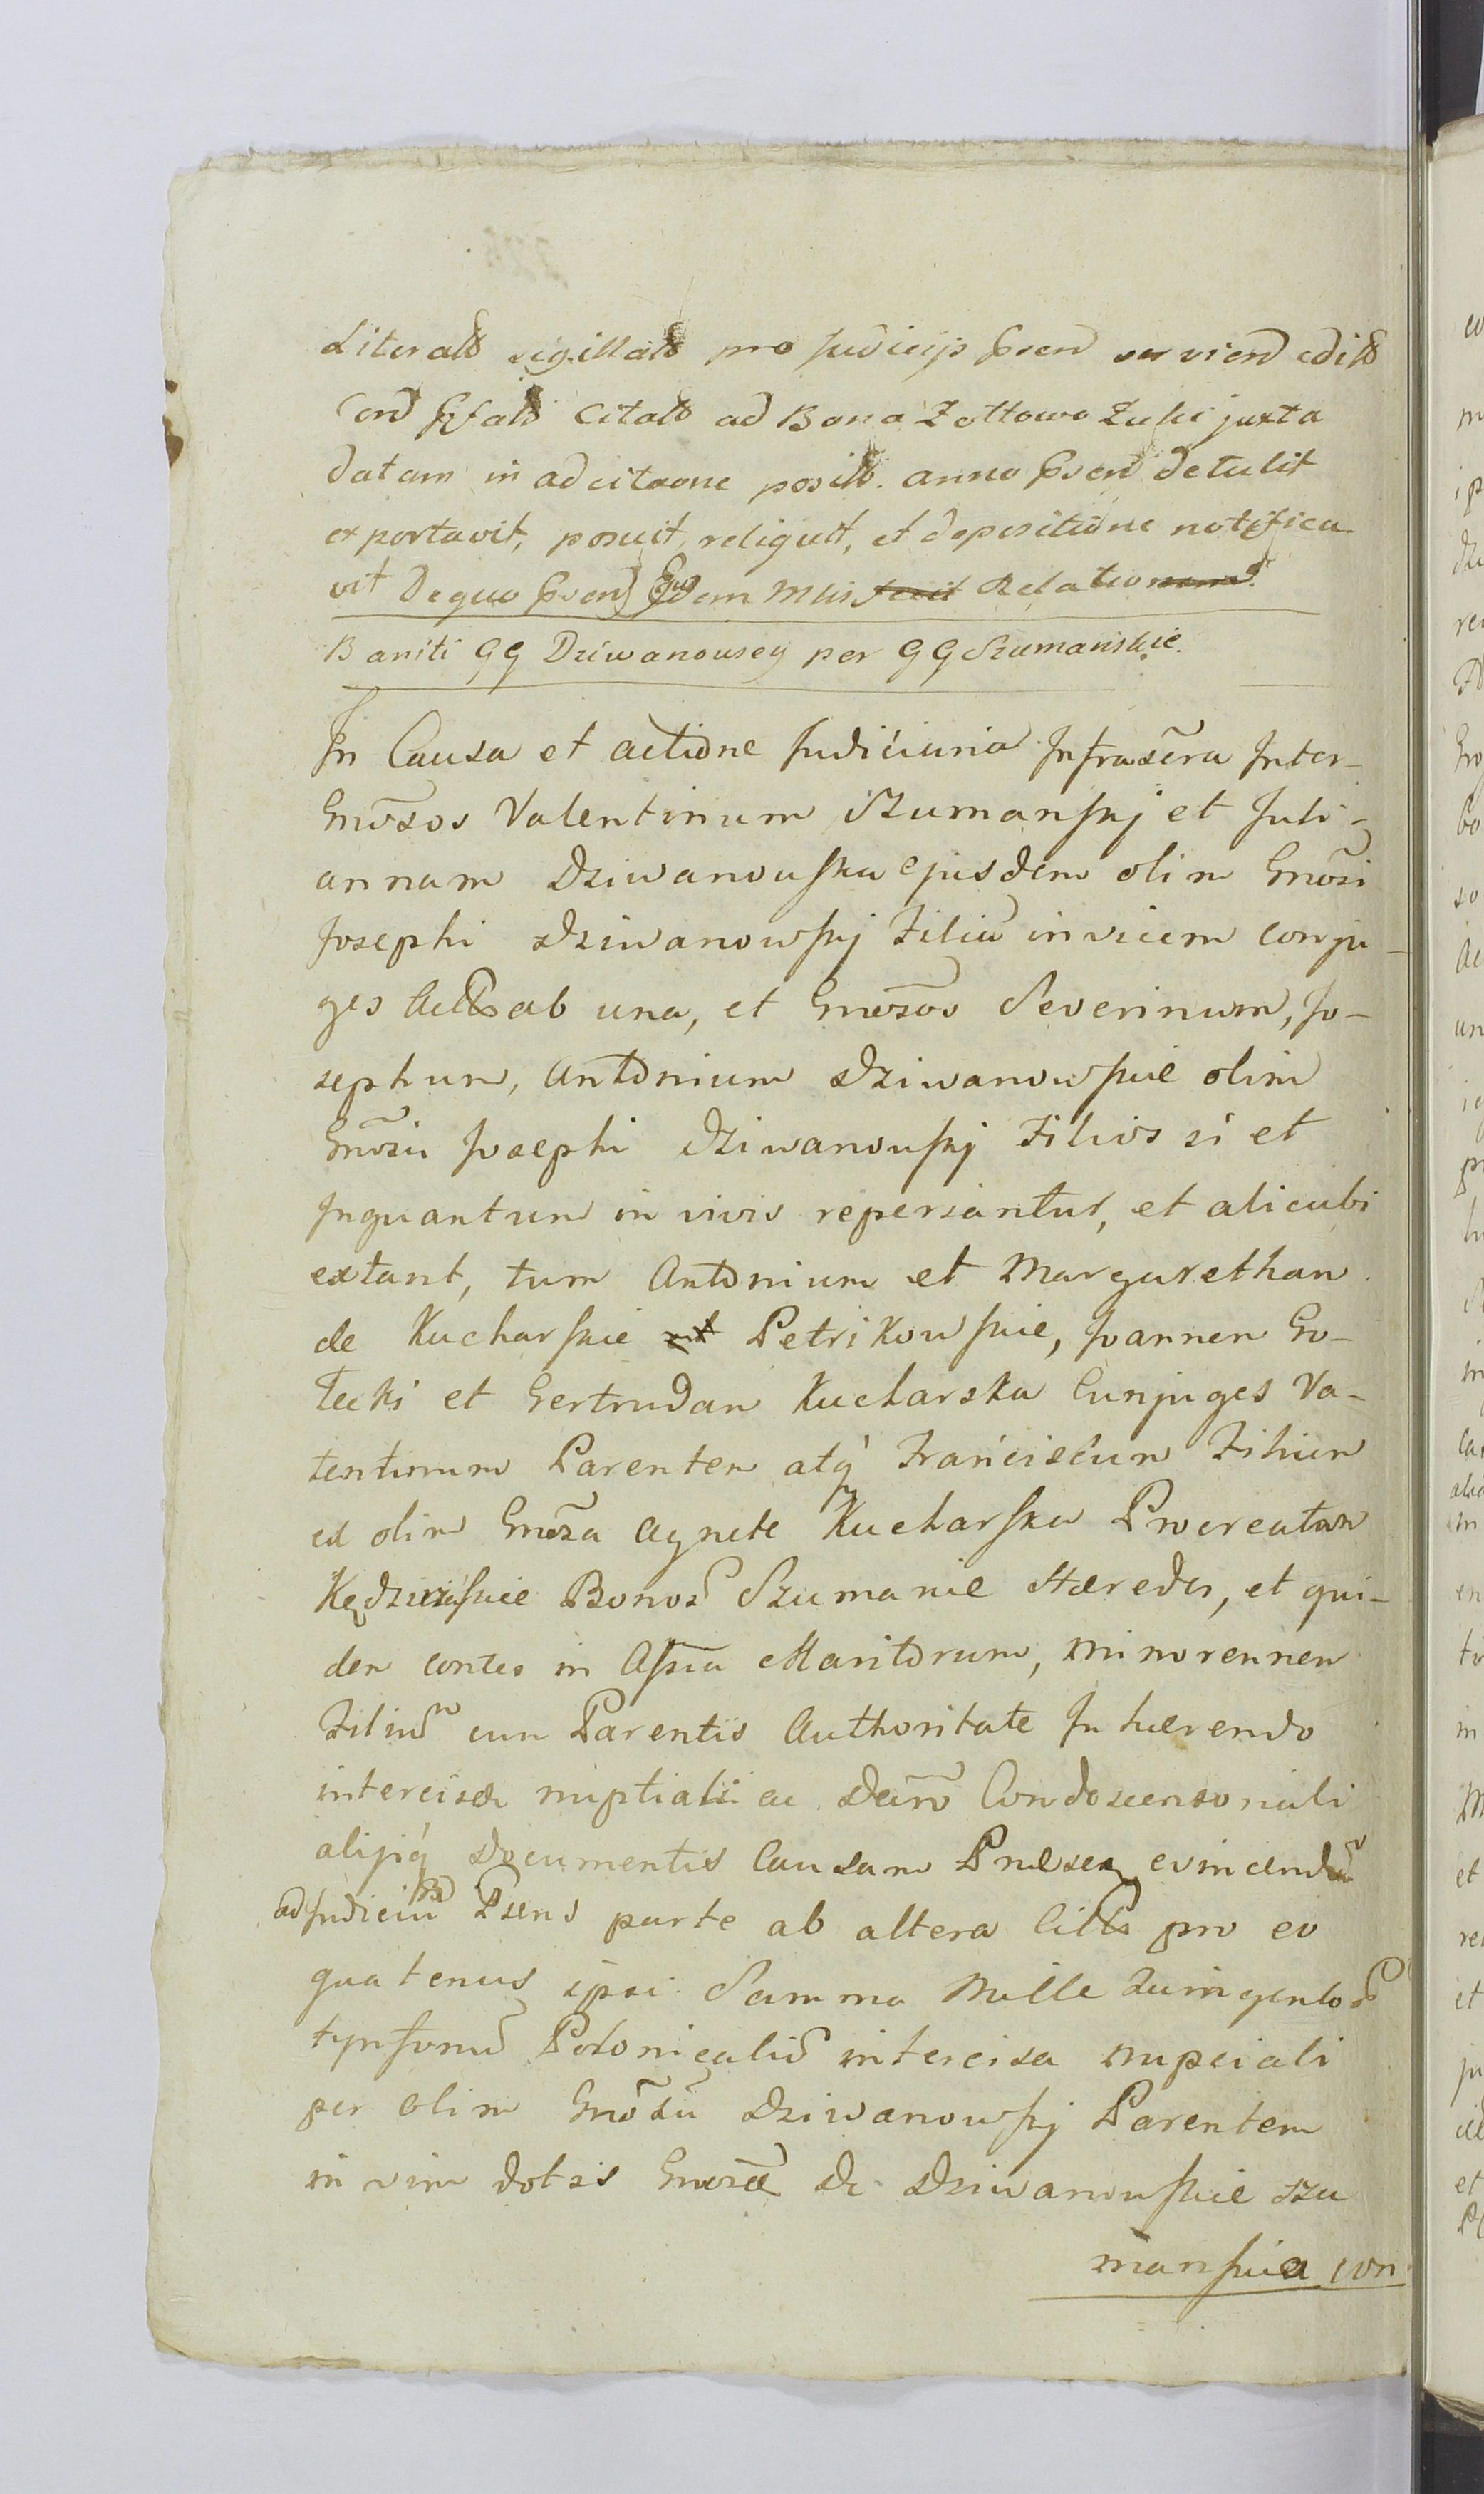 Literas sigillatas pro Judicijs servien edit
citat ad Bona Zottowo Zuki juxta
datam in adcitaone posit. anno detulit
exportavit, posuit, reliquit, et depositione notifica
vit De quo Mtis fecit Relationem
Baniti GG Dziwanowscy per GG Szumańskie.
In Causa et actione Judiciaria Infrascra Inter-
Gnosos Valentinum Szumanskj et Juli-
annam Dziwanowska ejusdem olim Gnosi
Josephi Dziwanowskj Filiã invicem conju-
ges ab una, et Gnosos Severinum, Jo-
sephum, Antonium Dziwanowskie olim
Gnosi Josephi Dziwanowskj Filios si et
Inquantum in vivis reperiantur, et alicubi
extant, tum Antonium et Margarethan
de Kucharskie Petrikowskie, Joannen Go-
tecki et Gertrudan Kucharska Cunjuges Va-
lentinum Parenten atq Franciscun Filiun
ex olim Gnosa Agnete Kucharska Procreatan
Bonor Szumanie Hæredes, et qui-
den contes in Assia Maritorum, minorennen
Filium cum Parentis Authoritate Inhærendo
intercisæ nuptiali ac Condescensoriali
alijsq Documentis Causam evincendã
ad Judiciũ Psens parte ab altera pro eo
quatenus ipsi Summa Mille Quingentos
Polonicaliũ intercisa nupciali
per olim Gnosũ Dziwanowskj Parentem
in vim dotis Gnosæ De Dziwanowskie Szu
manska con